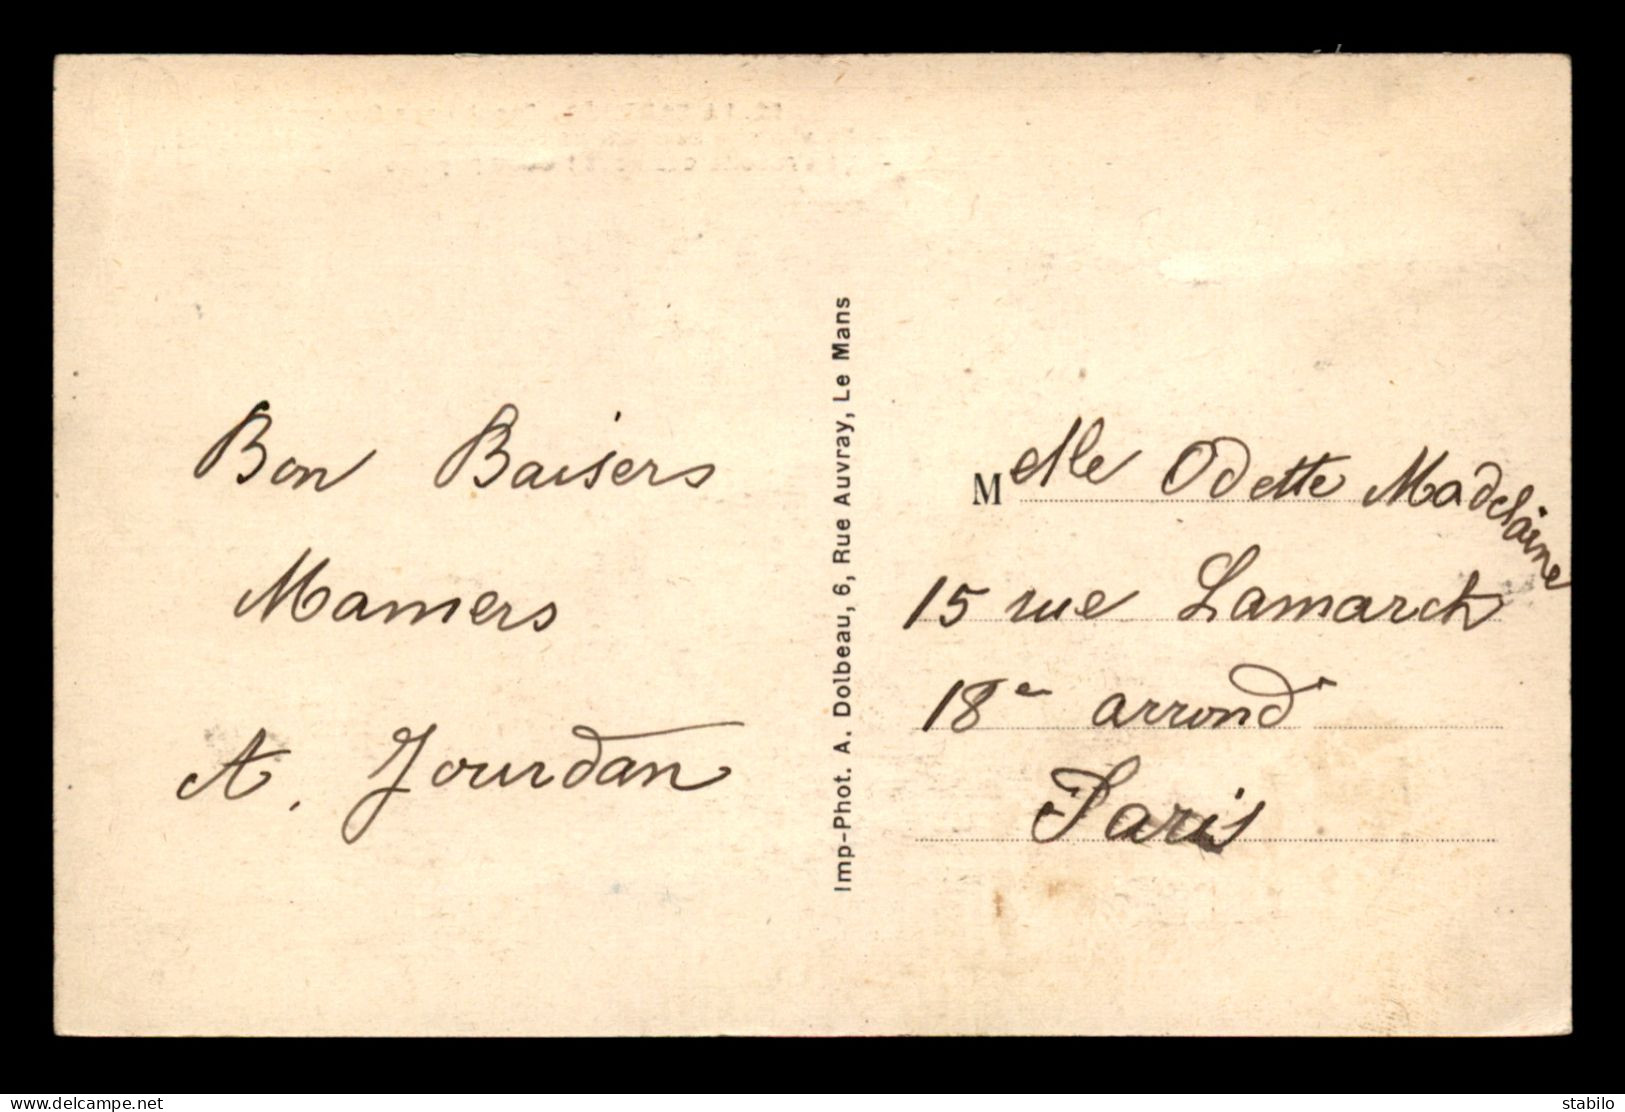 Bon Baisers
Mamers
A. Jourdan
Imp-Phot. A. Dolbeau, 6, Rue Auvray, Le Mans
Melle Odette Madelaine
15 rue Lamarck
18e arrond
Paris
www.delcampe.net
stabilo